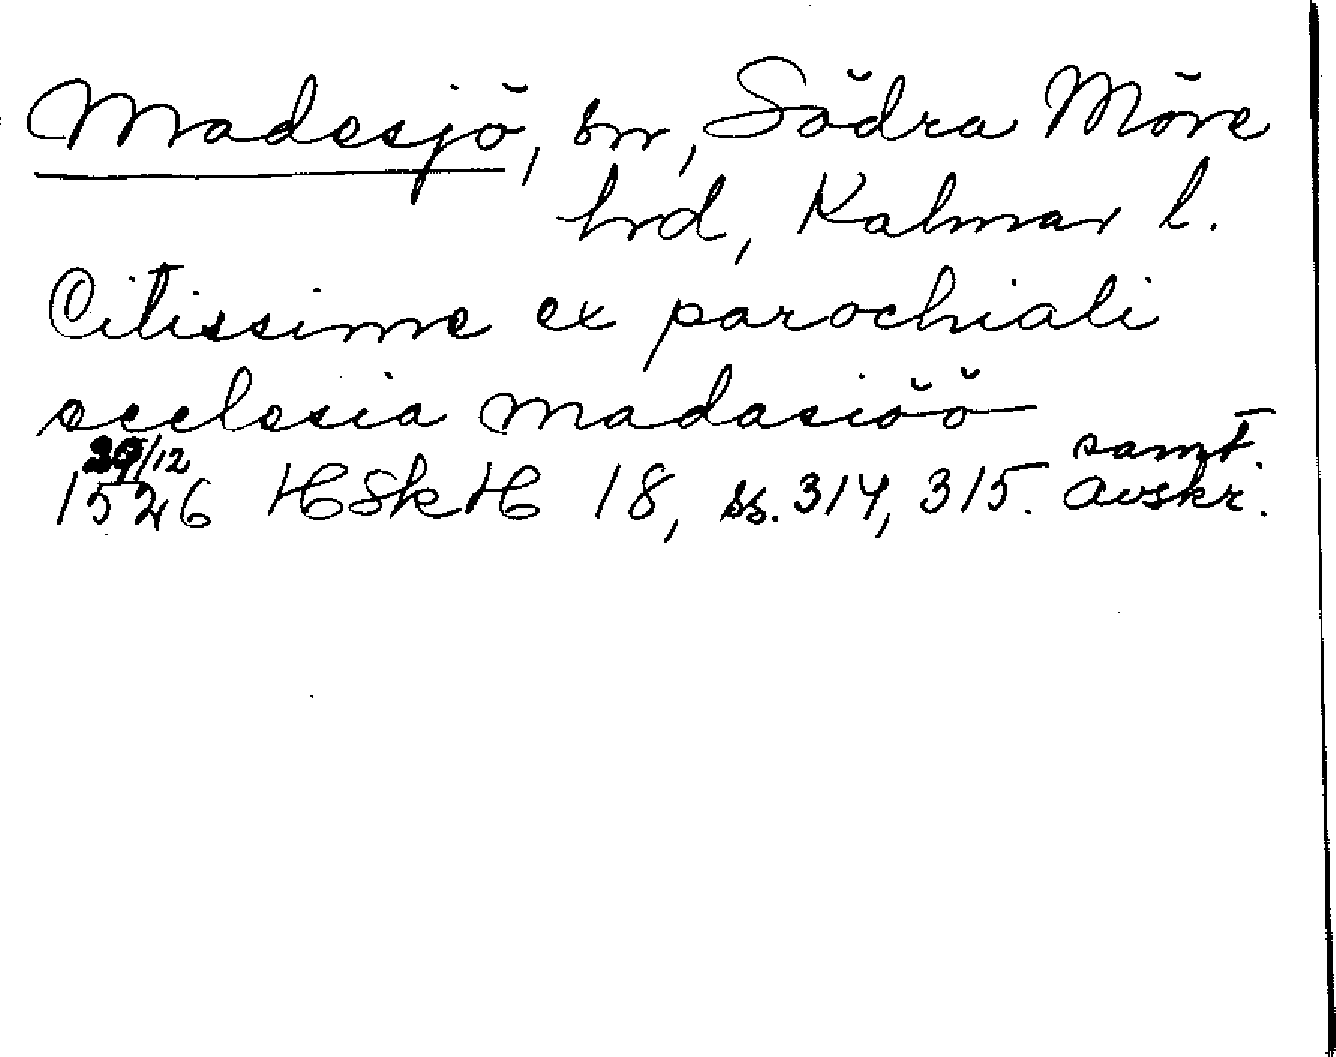 Madesjö, sn, Södra Möre
hrd, Kalmar l.
Citissime ex parochiali
ecclesia madasiöö
29/12
1526 HSkH 18, ss. 314, 315. samt. avskr.